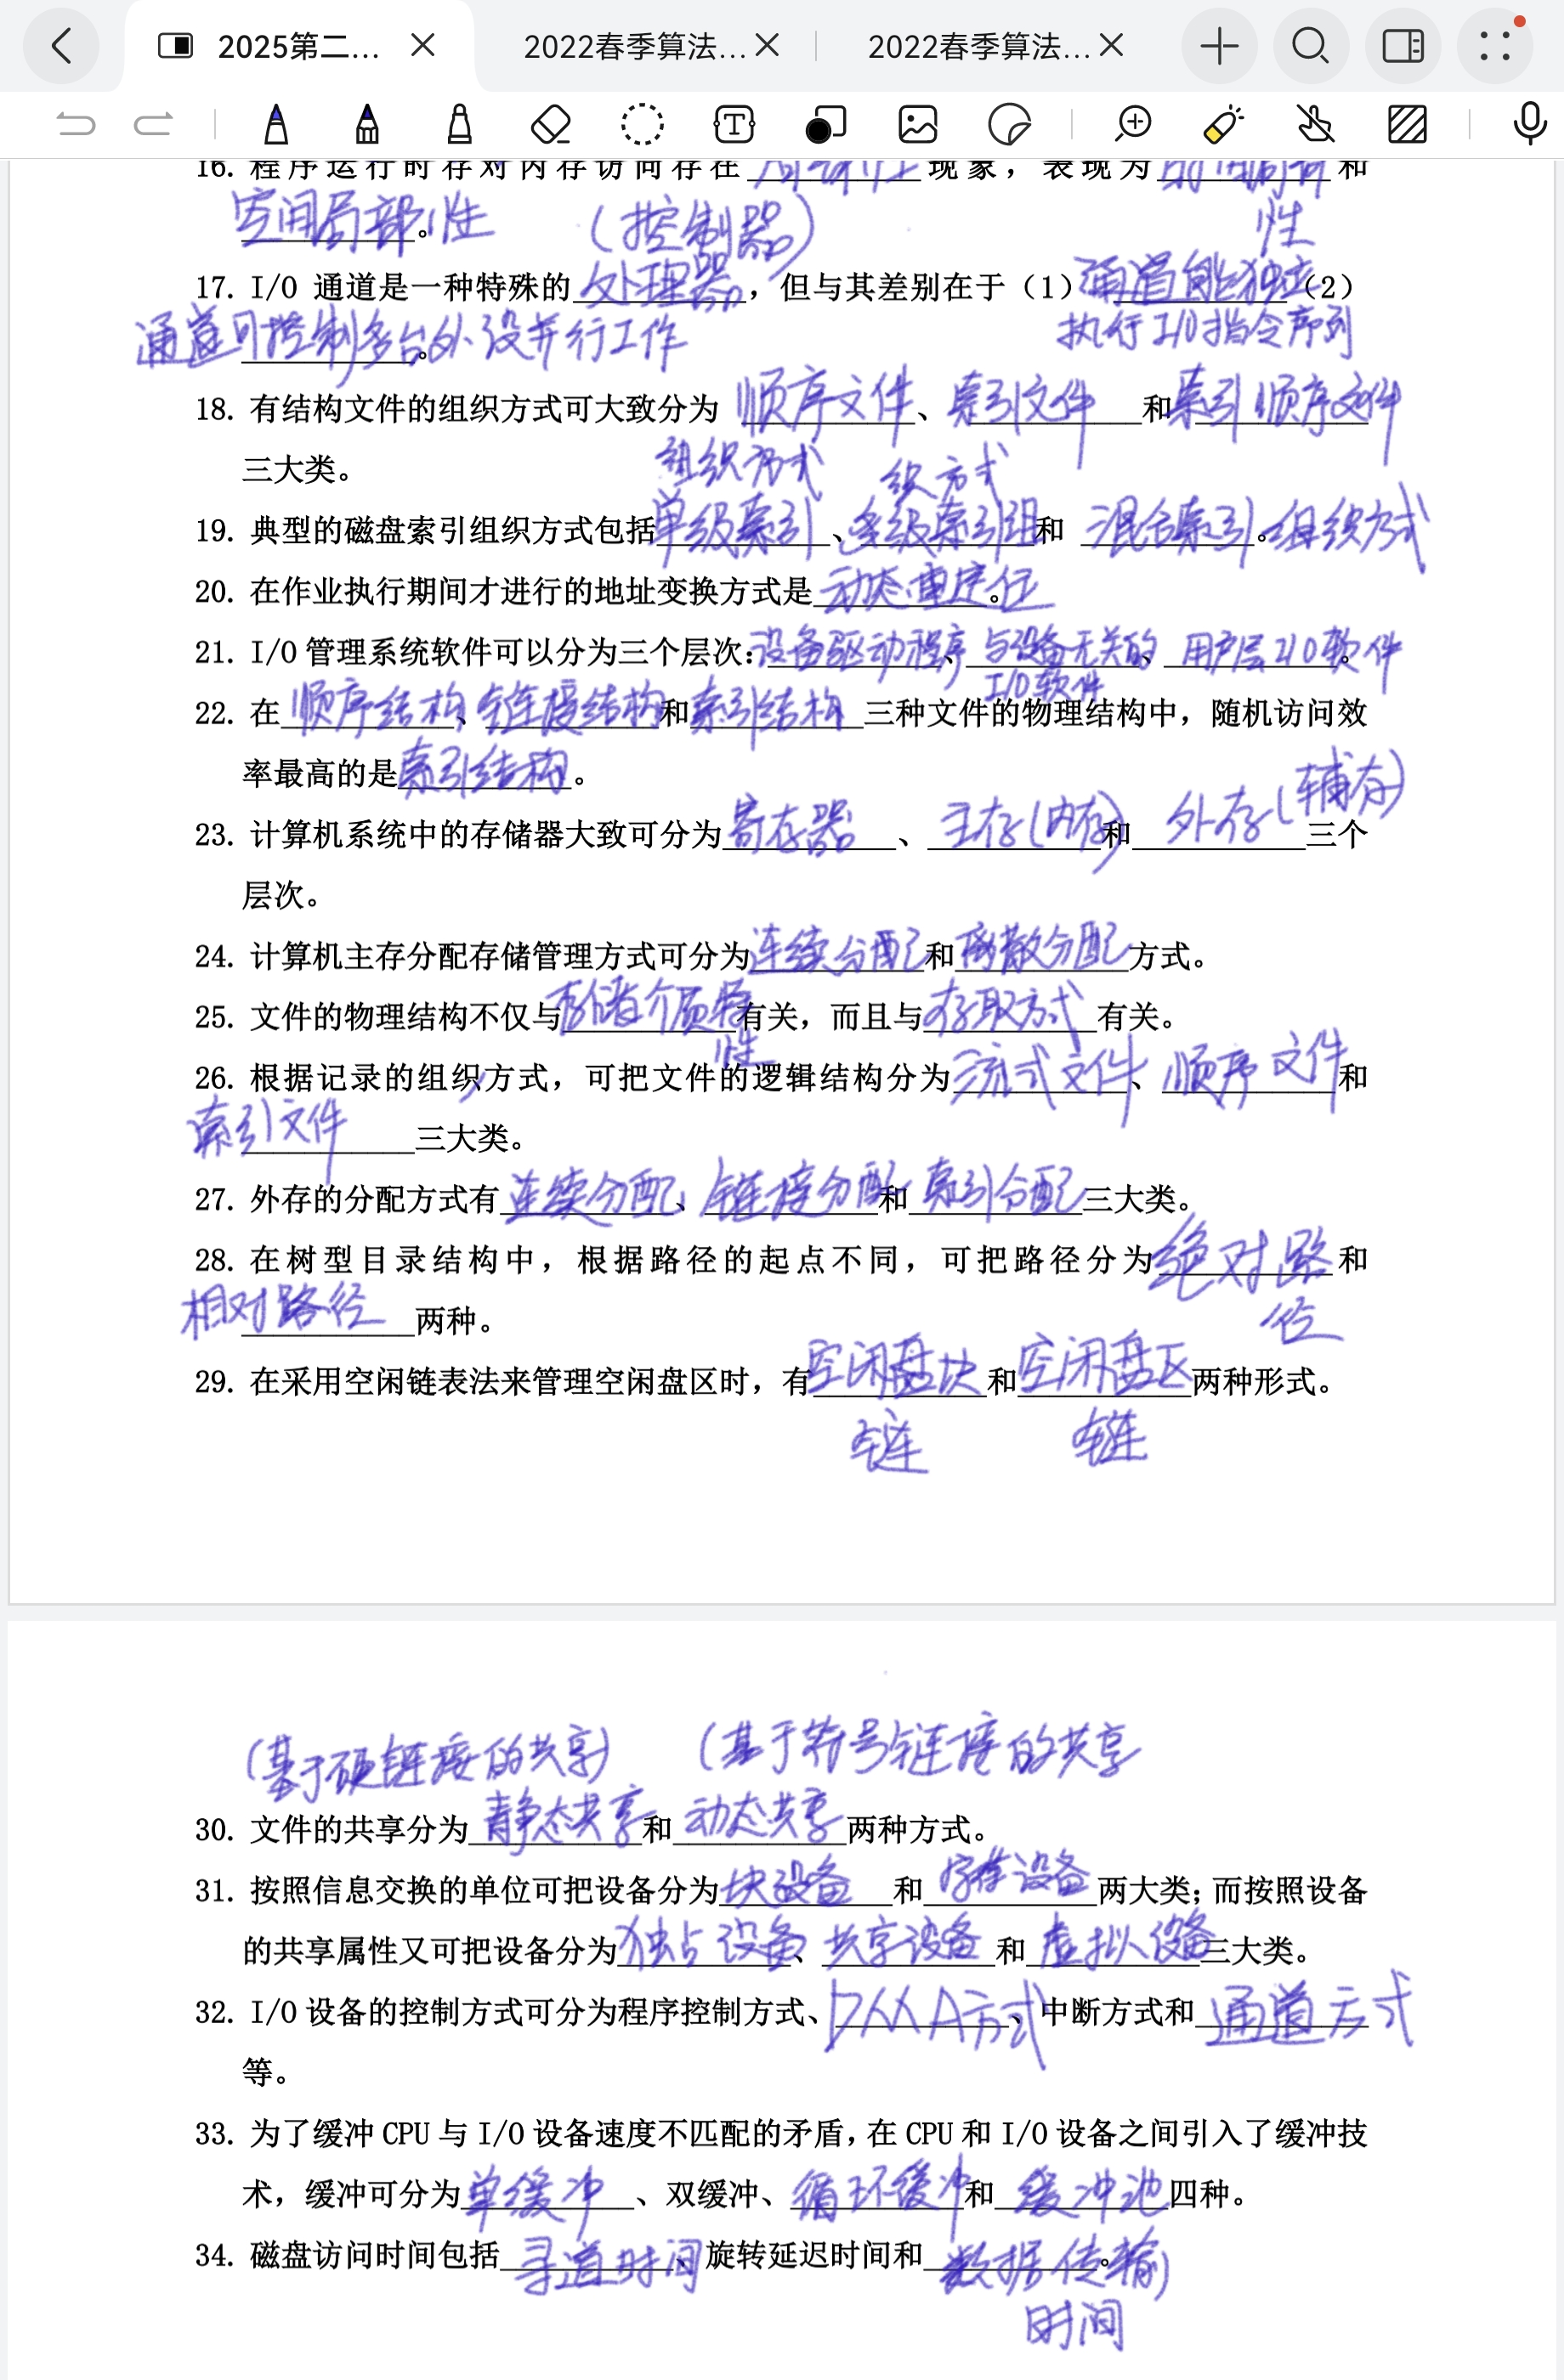 2025第二... 2022春季算法... 2022春季算法...
16. 程序运行时存对内存访问存在 现象，表现为 和
空间局部性。 （控制器） 性
17. I/O 通道是一种特殊的处理器，但与其差别在于（1）通道能独立（2）
执行I/O指令序列
通道可控制多台外设并行工作。
18. 有结构文件的组织方式可大致分为 顺序文件、索引文件和索引顺序文件
三大类。
组织方式 织方式
19. 典型的磁盘索引组织方式包括单级索引、多级索引组和 混合索引组织方式。
20. 在作业执行期间才进行的地址变换方式是动态重定位。
21. I/O 管理系统软件可以分为三个层次：设备驱动程序、与设备无关的、用户层I/O软件。
I/O软件
22. 在顺序结构、链接结构和索引结构三种文件的物理结构中，随机访问效
率最高的是索引结构。
23. 计算机系统中的存储器大致可分为寄存器、主存(内存)和外存(辅存)三个
层次。
24. 计算机主存分配存储管理方式可分为连续分配和离散分配方式。
25. 文件的物理结构不仅与存储介质特有关，而且与存取方式有关。
性
26. 根据记录的组织方式，可把文件的逻辑结构分为流式文件、顺序文件和
索引文件三大类。
27. 外存的分配方式有连续分配、链接分配和索引分配三大类。
28. 在树型目录结构中，根据路径的起点不同，可把路径分为绝对路和
径
相对路径两种。
29. 在采用空闲链表法来管理空闲盘区时，有空闲盘块和空闲盘区两种形式。
链 链
(基于硬链接的共享) (基于符号链接的共享
30. 文件的共享分为静态共享和动态共享两种方式。
31. 按照信息交换的单位可把设备分为块设备和字符设备两大类；而按照设备
的共享属性又可把设备分为独占设备、共享设备和虚拟设备三大类。
32. I/O 设备的控制方式可分为程序控制方式、DMA方式、中断方式和通道方式
等。
33. 为了缓冲 CPU 与 I/O 设备速度不匹配的矛盾，在 CPU 和 I/O 设备之间引入了缓冲技
术，缓冲可分为单缓冲、双缓冲、循环缓冲和缓冲池四种。
34. 磁盘访问时间包括寻道时间、旋转延迟时间和数据传输。
时间